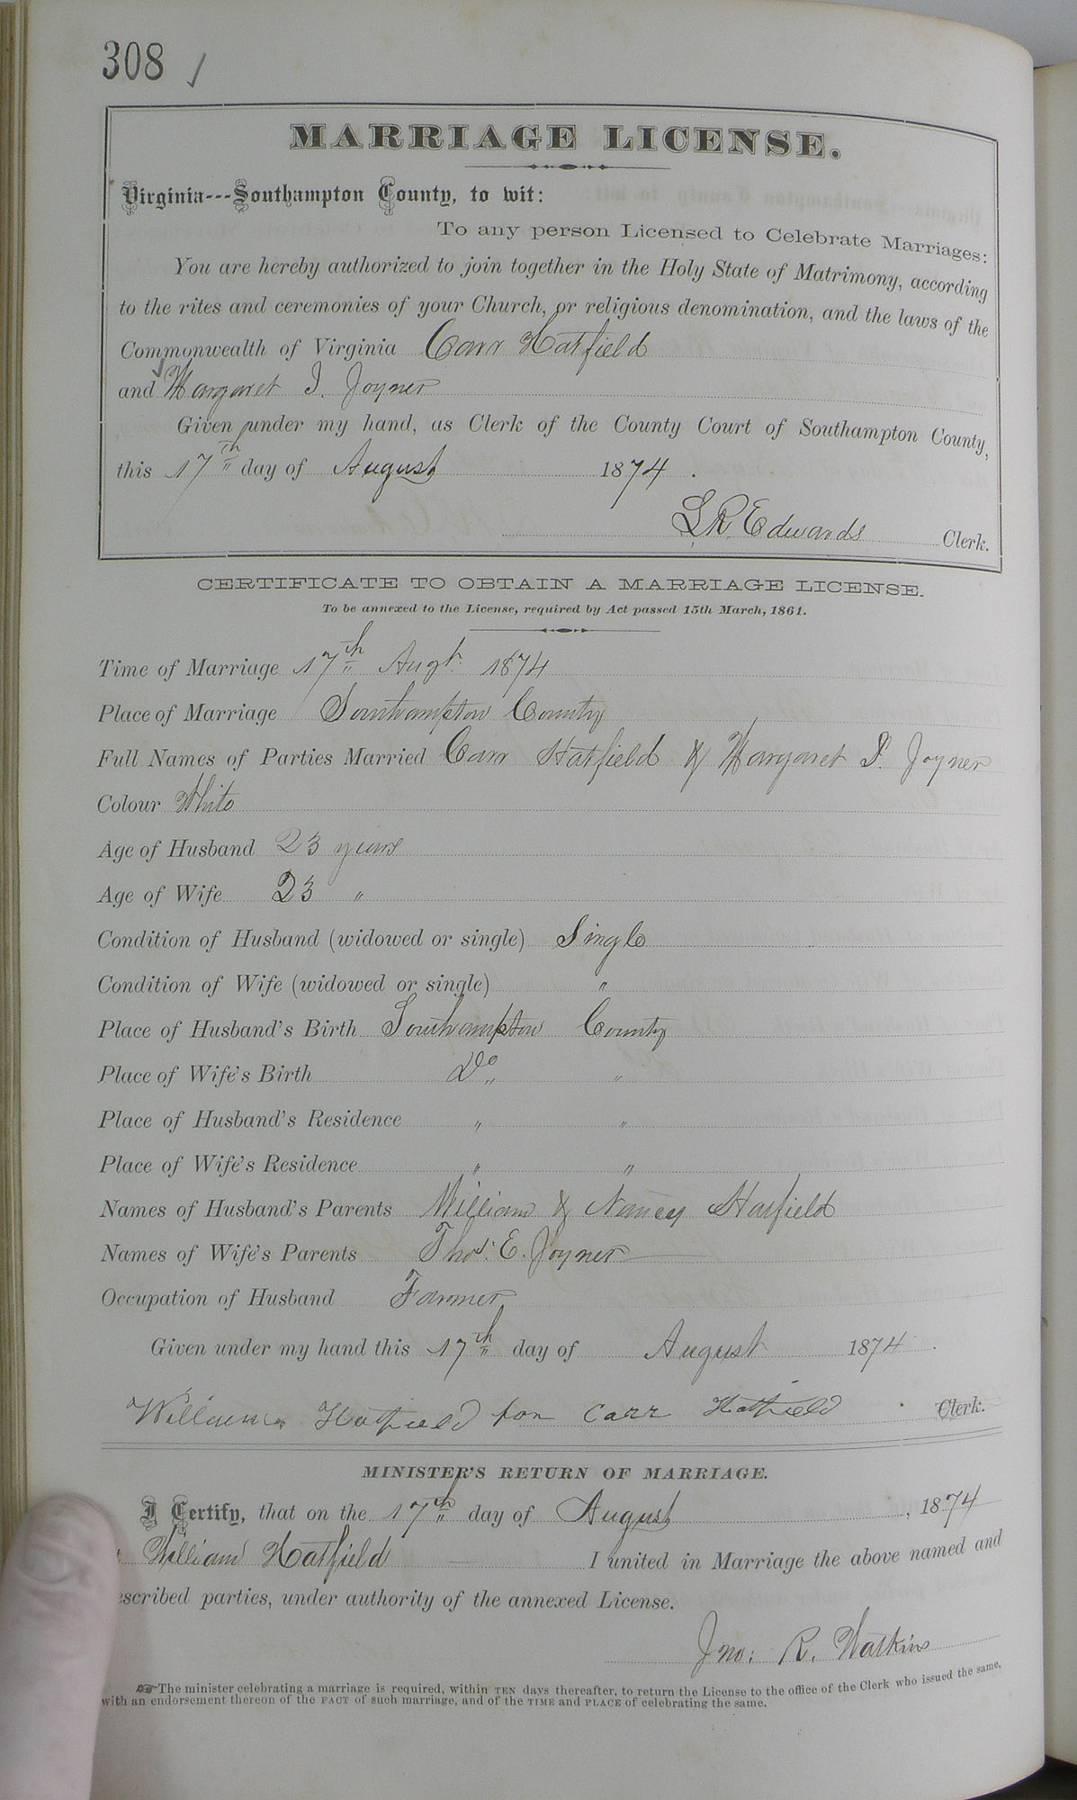 308 ✓
MARRIAGE LICENSE.
Virginia---Southampton County, to wit:
To any person Licensed to Celebrate Marriages:
You are hereby authorized to join together in the Holy State of Matrimony, according
to the rites and ceremonies of your Church, or religious denomination, and the laws of the
Commonwealth of Virginia Carr Hatfield
and Margaret I. Joyner
Given under my hand, as Clerk of the County Court of Southampton County,
this 17th day of August 1874.
L. R. Edwards Clerk.
CERTIFICATE TO OBTAIN A MARRIAGE LICENSE.
To be annexed to the License, required by Act passed 15th March, 1861.
Time of Marriage 17th Augt. 1874
Place of Marriage Southampton County
Full Names of Parties Married Carr Hatfield & Margaret I. Joyner
Colour White
Age of Husband 23 years
Age of Wife 23 "
Condition of Husband (widowed or single) Single
Condition of Wife (widowed or single) "
Place of Husband's Birth Southampton County
Place of Wife's Birth Do "
Place of Husband's Residence " "
Place of Wife's Residence " "
Names of Husband's Parents William & Nancy Hatfield
Names of Wife's Parents Thos. E. Joyner
Occupation of Husband Farmer
Given under my hand this 17th day of August 1874.
William Hatfield for Carr Hatfield Clerk.
MINISTER'S RETURN OF MARRIAGE.
I Certify, that on the 17th day of August, 1874
William Hatfield I united in Marriage the above named and
escribed parties, under authority of the annexed License.
Jno: R. Watkins
☞ The minister celebrating a marriage is required, within TEN days thereafter, to return the License to the office of the Clerk who issued the same,
with an endorsement thereon of the FACT of such marriage, and of the TIME and PLACE of celebrating the same.